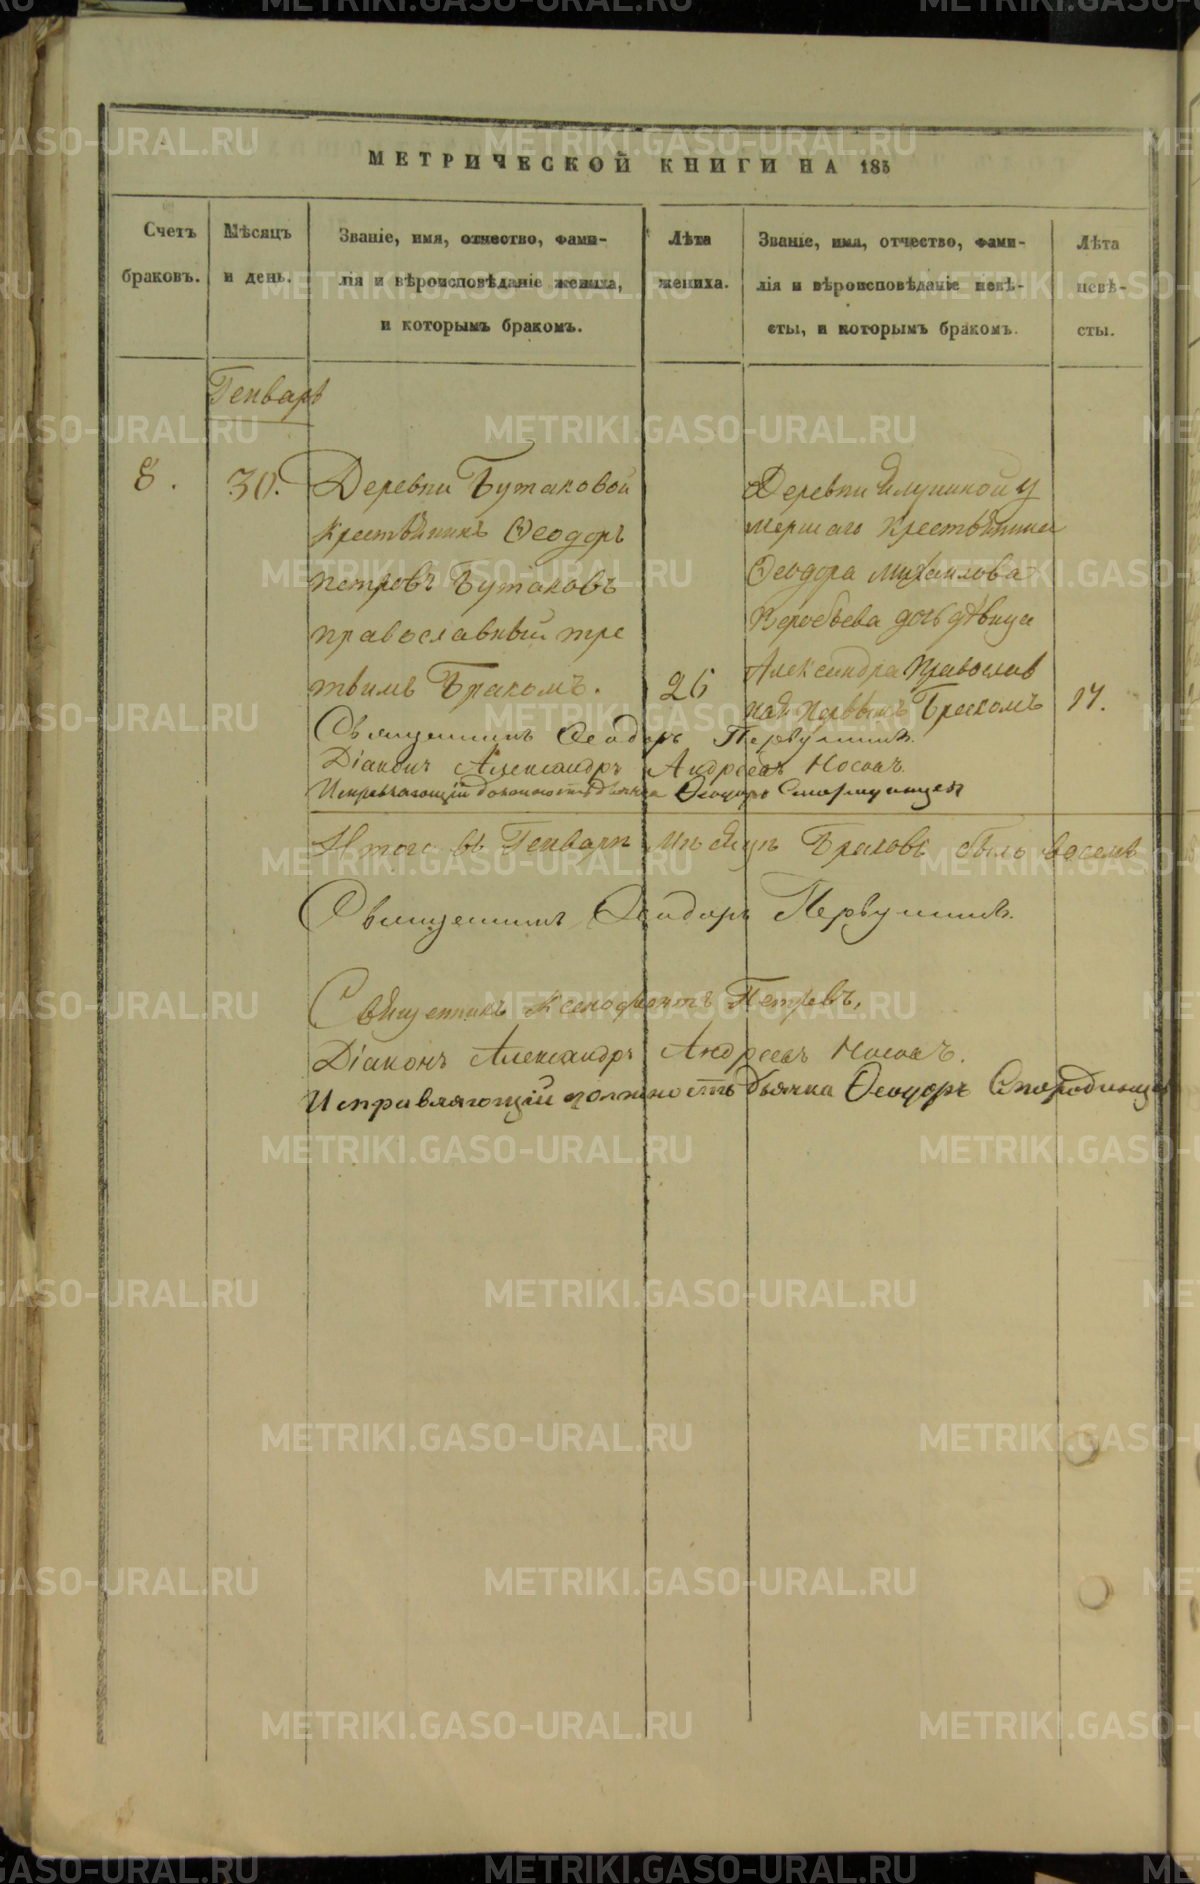 МЕТРИЧЕСКОЙ КНИГИ НА 185
Счетъ браковъ.
Мѣсяцъ и день.
Званіе, имя, отчество, фами-
лія и вѣроисповѣданіе жениха,
и которымъ бракомъ.
Лѣта жениха.
Званіе, имя, отчество, фами-
лія и вѣроисповѣданіе невѣ-
сты, и которымъ бракомъ.
Лѣта невѣ-
сты.
Генварь
8.
30.
Деревни Бутаковой
крестьянинъ Ѳеодоръ
петровъ Бутаковъ
православный тре
тьимъ Бракомъ.
26
Деревни Елуниной у
мершаго крестьянина
Ѳеодора михаилова
Воробьева дочь дѣвица
Александра Православ
ная Первымъ Бракомъ
17.
Священникъ Ѳеодоръ Первушинъ.
Діаконъ Александръ Андреевъ Носовъ.
Исправляющій должность дьячка Ѳеодоръ
Итого въ Генварѣ мѣсяцѣ Браковъ было восемь
Священникъ Ѳеодоръ Первушинъ.
Священникъ Ксенофонтъ Петровъ,
Діаконъ Александръ Андреевъ Носовъ.
Исправляющій должность дьячка Ѳеодоръ
METRIKI.GASO-URAL.RU